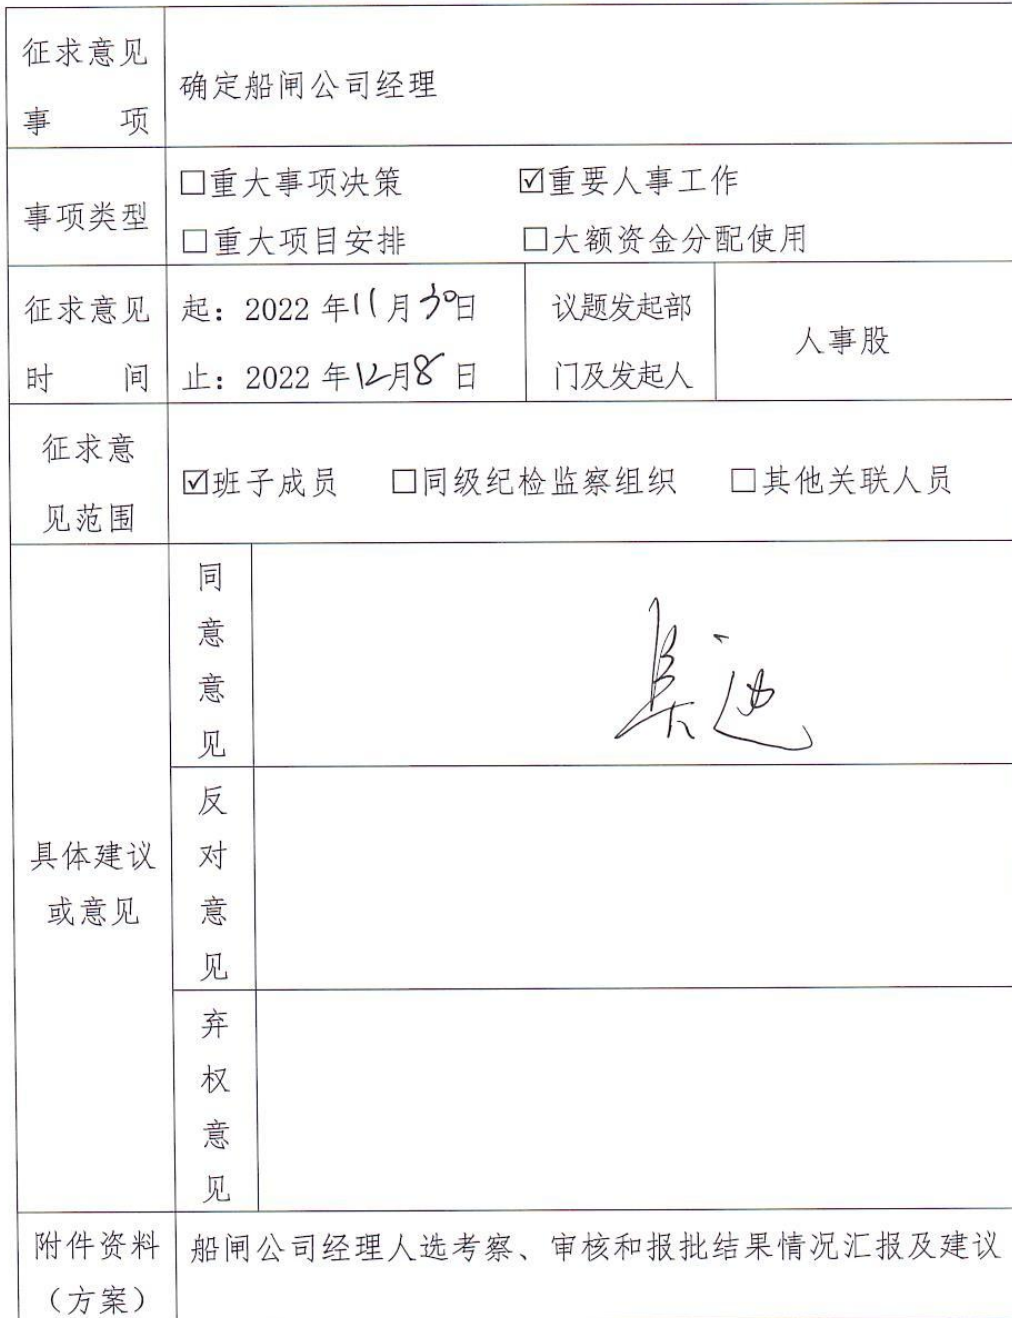 征求意见
事 项
确定船闸公司经理
事项类型
□重大事项决策 ☑重要人事工作
□重大项目安排 □大额资金分配使用
征求意见
时 间
起：2022年11月30日
止：2022年12月8日
议题发起部
门及发起人
人事股
征求意
见范围
☑班子成员 □同级纪检监察组织 □其他关联人员
具体建议
或意见
同意意见
反对意见
弃权意见
附件资料
（方案）
船闸公司经理人选考察、审核和报批结果情况汇报及建议